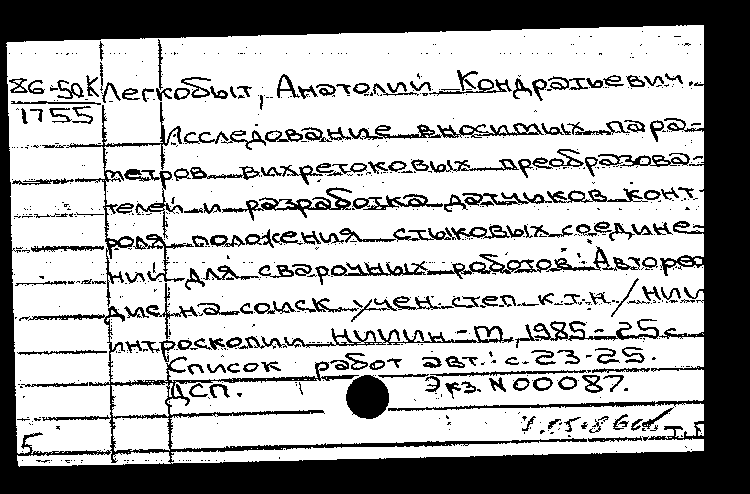 86-50К Легкобыт, Анатолий Кондратьевич.
1755
Исследование вносимых пара-
метров вихретоковых преобразова-
телей и разработка датчиков конт-
роля положения стыковых соедине-
ний для сварочных роботов: Автореф
дис на соиск учен. степ к.т.н / НИИ
интроскопии НИИИн.-М, 1985-25с
Список работ авт.: с.23-25.
ДСП. Экз. N00087.
5